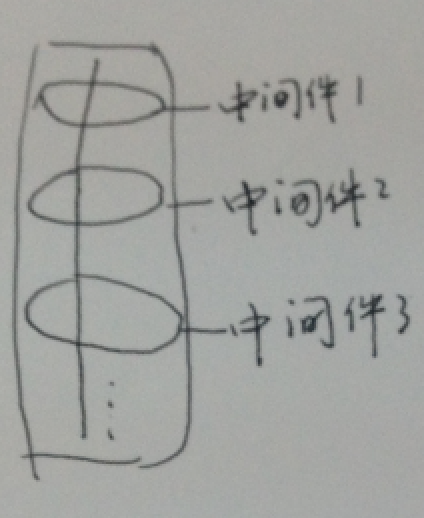 中间件1
中间件2
中间件3